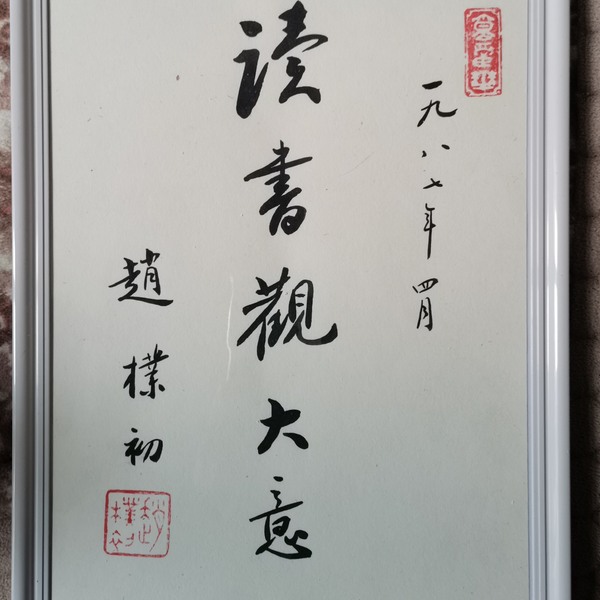 一九八七年四月
读書觀大意
趙樸初
趙樸初